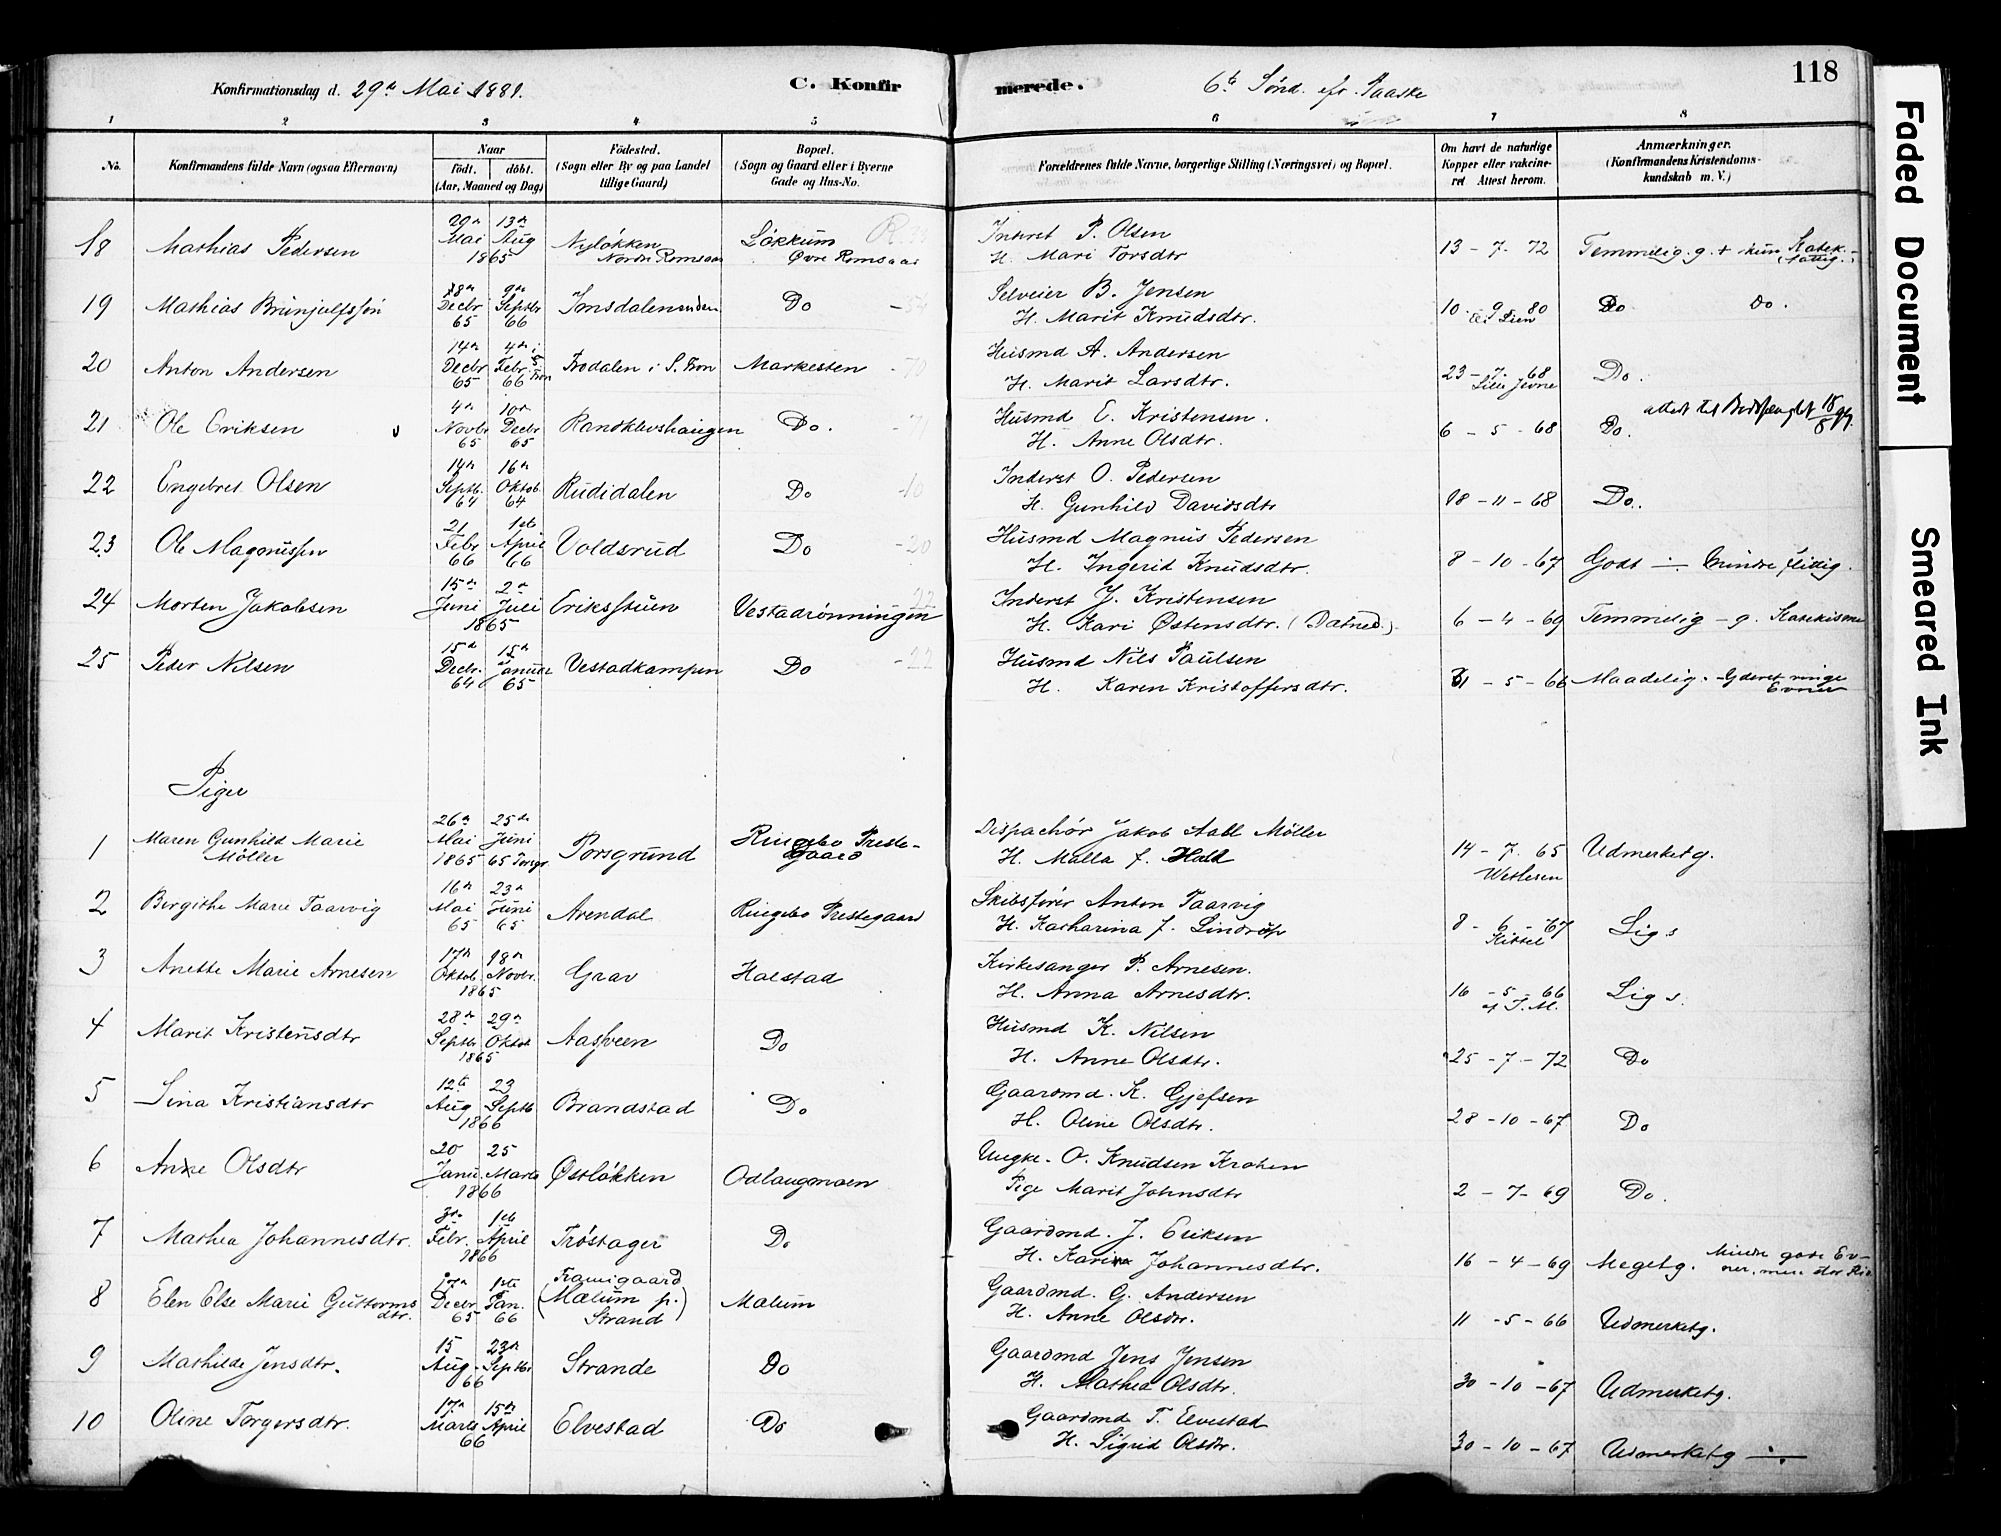 Konfirmationsdag d. 29de Mai 1881.
C. Konfirmerede.
6te Sønd. efr. Paaske
118
1 2 3 4 5 6 7 8
No. Konfirmandens fulde Navn (ogsaa Efternavn) Naar født. døbt. (Aar, Maaned og Dag) Fødested. (Sogn eller By og paa Landet tillige Gaard) Bopæl. (Sogn og Gaard eller i Byerne Gade og Hus-No. Forældrenes fulde Navne, borgerlige Stilling (Næringsvei) og Bopæl. Om havt de naturlige Kopper eller vakcineret Attest herom. Anmærkninger. (Konfirmandens Kristendomskundskab m. V.)
18 Mathias Pedersen 29de Mai 13de Aug 1865 Nyløkken Nordre Romsaas Løkkum Øvre Romsaas Inderst P. Olsen H. Mari Torsdtr 13 - 7 - 72 Temmelig g. + kun Katek.
19 Mathias Brynjulfssøn 18de Decbr 65 9de Septbr 66 Imsdalen Do Selveier B. Jensen H. Marit Knudsdtr. 10 - 9 - 80 Do Do.
20 Anton Andersen 14de Decbr 65 4de Febr 66 i S. Fron Frodalen i S. Fron Markesten Husmd A. Andersen H. Marit Larsdtr. 23 - 7 - 68 Do.
21 Ole Eriksen 4de Novbr 65 10de Decbr 65 Randklevshaugen Do. Husmd E. Kristensen. H. Anne Olsdtr. 6 - 5 - 68 Do. attest til
22 Engebret Olsen 14de Septb. 64 16de Oktob 64 Rudidalen Do Inderst O. Pedersen H. Gunhild Davidsdtr 18 - 11 - 68 Do.
23 Ole Magnussen 21 Febr 66 1ste April 66 Voldsrud Do Husmd Magnus Pedersen H. Ingerid Knudsdtr. 8 - 10 - 67 Godt -:- mindre flittig.
24 Morten Jakobsen 15de Juni 2de Juli 1865 Eriksstuen Vestadrønningen Inderst J. Kristensen H. Kari Østensdtr. 6 - 4 - 69 Temmelig - g. Katekisme
25 Peder Nilsen 15de Decbr. 64 15de Januar 65 Vestadkampen Do Husmd Nils Paulsen H. Karen Kristoffersdtr. 31 - 5 - 66 Maadelig. - ringe Evner
Piger
1 Maren Gunhild Marie Møller 26de Mai 1865 25de Juni 65 Porsgr Porsgrund Ringebo Prestegaard Dispachør Jakob Aall Møller H. Malla f. 14 - 7 - 65 Wetlesen Udmerket g.
2 Bergithe Marie Taarvig 16de Mai 65 23de Juni 65 Arendal Ringebo Prestegaard Skibsfører Anton Taarvig H. Katharina f. Lindrup 8 - 6 - 67 Kittel Lig s
3 Anette Marie Arnesen 17de Oktob. 18de Novbr. 1865 Grav Halstad Kirkesanger P. Arnesen. H. Anna Arnesdtr. 16 - 5 - 66 Lig s.
4 Marit Kristensdtr 28de Septbr 29de Oktob 1865 Aasveen Do Husmd K. Nilsen H. Anne Olsdtr. 25 - 7 - 72 Do
5 Lina Kristiansdtr 12te Aug 23 Septb 1866 Brandstad Do Gaardmd. K. Gjefsen H. Oline Olsdtr. 28 - 10 - 67 Do
6 Anne Olsdtr 20 Janu. 25 Marts 1866 Østløkken Odlaugmoen Ungke. O. Knudsen Pige Marit Johnsdtr 2 - 7 - 69 Do.
7 Mathea Johannesdtr. Febr. 1ste April 1866 Trøstager Do Gaardmd. J. Eriksen H. Kari Johannesdtr. 16 - 4 - 69 Meget g. Mindre gode Evner, men stor
8 Elen Else Marie Guttormsdtr. 17de Decbr 65 1ste Jan. 66 Framigaard (Mælum p.) Strand Mælum Gaardmd. G. Andersen H. Anne Olsdtr. 11 - 5 - 66 Udmerket g.
9 Mathilde Jensdtr. 15 Aug. 23de Septbr 66 Strande Do Gaardmd Jens Jensen H. Mathea Olsdtr. 30 - 10 - 67 Udmerket g.
10 Oline Torgersdtr. 17de Marts 15de April 66 Elvestad Do Gaardmd T. Elvestad H. Sigrid Olsdtr. 30 - 10 - 67 Udmerket g -:-
Faded Document
Smeared Ink